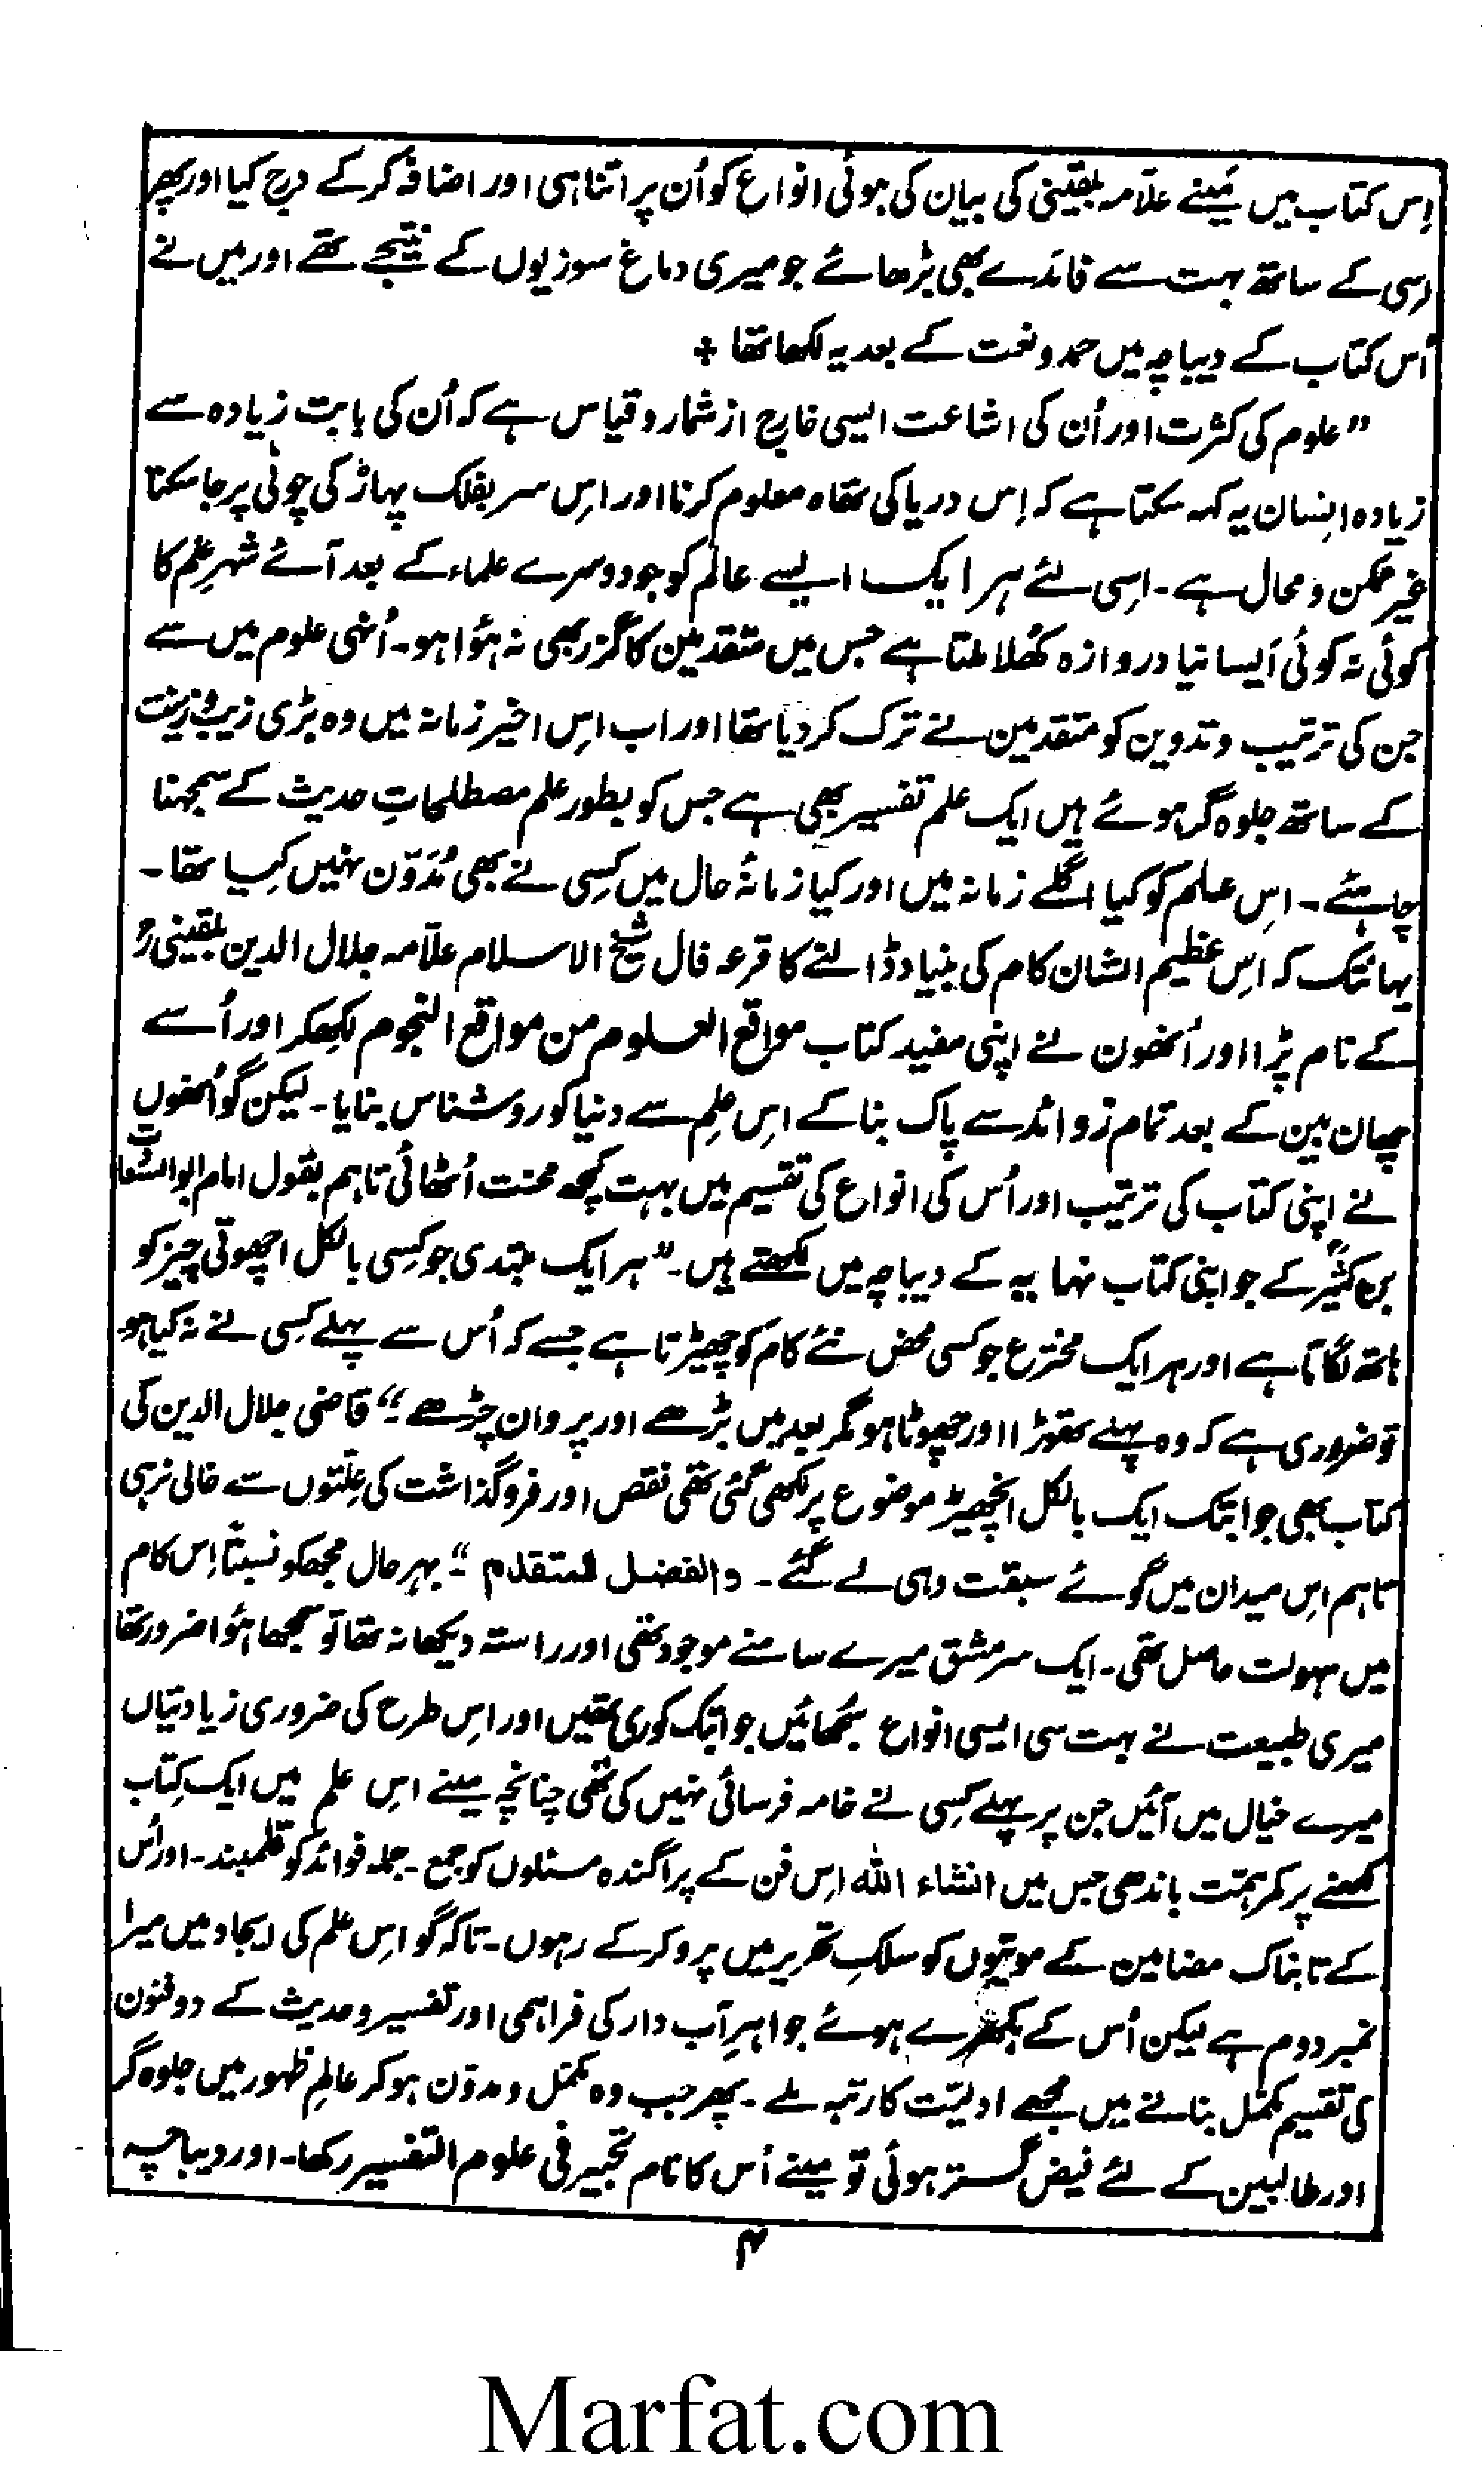 اِس کتاب میں مَینے علاّمہ بلقینی کی بیان کی ہوئی انواع کو اُن پر اتنا ہی اور اضافہ کرکے درج کیا اور پھر
اِسی کے ساتھ بہت سے فائدے بھی بڑھائے جو میری دماغ سوزیوں کے نتیجے تھے اور میں نے
اُس کتاب کے دیباچہ میں حمد و نعت کے بعد یہ لکھا تھا ÷
”علوم کی کثرت اور اُن کی اشاعت ایسی خارج از شمار و قیاس ہے کہ اُن کی بابت زیادہ سے
زیادہ اِنسان یہ کہہ سکتا ہے کہ اِس دریا کی تھاہ معلوم کرنا اور اِس سر بفلک پہاڑ کی چوٹی پر جا سکتا
غیر ممکن و محال ہے۔ اسِی لئے ہر ایک ایسے عالم کو جو دوسرے علماء کے بعد آئے شہرِ عِلم کا
کوئی نہ کوئی اَیسا نیا دروازہ کُھلا ملتا ہے جس میں متقدمین کا گزر بھی نہ ہؤا ہو۔ اُنہی علوم میں سے
جن کی ترتیب و تدوین کو متقدمین نے ترک کر دیا تھا اور اب اِس اخیر زمانہ میں وہ بڑی زیب و زینت
کے ساتھ جلوہ گر ہوئے ہیں ایک علم تفسیر بھی ہے جس کو بطور علم مصطلحاتِ حدیث کے سمجھنا
چاہئے۔ اِس علم کو کیا اگلے زمانہ میں اور کیا زمانۂ حال میں کِسی نے بھی مُدَوّن نہیں کِیا تھا۔
یہانتک کہ اِس عظیم الشان کام کی بنیاد ڈالنے کا قرعہ فال شیخ الاسلام علاّمہ جلال الدین بلقینی رح
کے نام پڑا اور اُنھون نے اپنی مفید کتاب مواقع العلوم من مواقع النجوم لِکھکر اور اُسے
چھان بین کے بعد تمام زوائد سے پاک بنا کے اِس عِلِم سے دنیا کو روشناس بنایا۔ لیکن گو اُنھوں
نے اپنی کتاب کی ترتیب اور اُس کی انواع کی تقسیم میں بہت کچھ محنت اُٹھائی تاہم بقول امام ابو السّعادات
بن کثیر کے جو اپنی کتاب نہایہ کے دیباچہ میں لکھتے ہیں۔ ”ہر ایک مبتدی جو کِسی بالکل اچھوتی چیز کو
ہاتھ لگاتا ہے اور ہر ایک مخترع جو کسی محض نئے کام کو چھیڑتا ہے جسے کہ اُس سے پہلے کِسی نے نہ کیا ہو
تو ضروری ہے کہ وہ پہلے تھوڑا اور چھوٹا ہو مگر بعد میں بڑھے اور پروان چڑھے“ قاضی جلال الدین کی
کتاب بھی جو ابتک ایک بالکل انچھیڑ موضوع پر لکھی گئی تھی نقص اور فروگذاشت کی عِلّتوں سے خالی نرہی
تاہم اِس میدان میں گوئے سبقت وہی لے گئے۔ والفضل للمتقدم“ بہر حال مجھکو نسبتاً اِس کام
میں سہولت حاصل تھی۔ ایک سرمشق میرے سامنے موجود تھی اور راستہ دیکھا نہ تھا تو سمجھا ہؤا ضرور تھا
میری طبیعت نے بہت سی ایسی انواع سُجھائیں جو ابتک کوری تھیں اور اِس طرح کی ضروری زیادتیاں
میرے خیال میں آئیں جن پر پہلے کِسی نے خامہ فرسائی نہیں کی تھی چنانچہ مینے اِس علم میں ایک کِتاب
لکھنے پر کمر ہمّت باندھی جس میں انشاء اللہ اِس فن کے پراگندہ مسئلوں کو جمع۔ جملہ فوائد کو قلمبند۔ اور اُس
کے تابناک مضامین کے موتیوں کو سلکِ تحریر میں پرو کر کے رہوں۔ تاکہ گو اِس علم کی ایجاد میں میرا
نمبر دوم ہے لیکن اُس کے بکھرے ہوئے جواہرِ آب دار کی فراہمی اور تفسیر و حدیث کے دو فنون
کی تقسیم مکمّل بنانے میں مجھے اوّلیّت کا رتبہ ملے۔ پھر جب وہ مکمّل و مدوّن ہوکر عالمِ ظہور میں جلوہ گر
اور طالبین کے لئے فیض گستر ہوئی تو مینے اُس کا نام تحبیر فی علوم التفسیر رکھا۔ اور دیباچہ
۴
Marfat.com